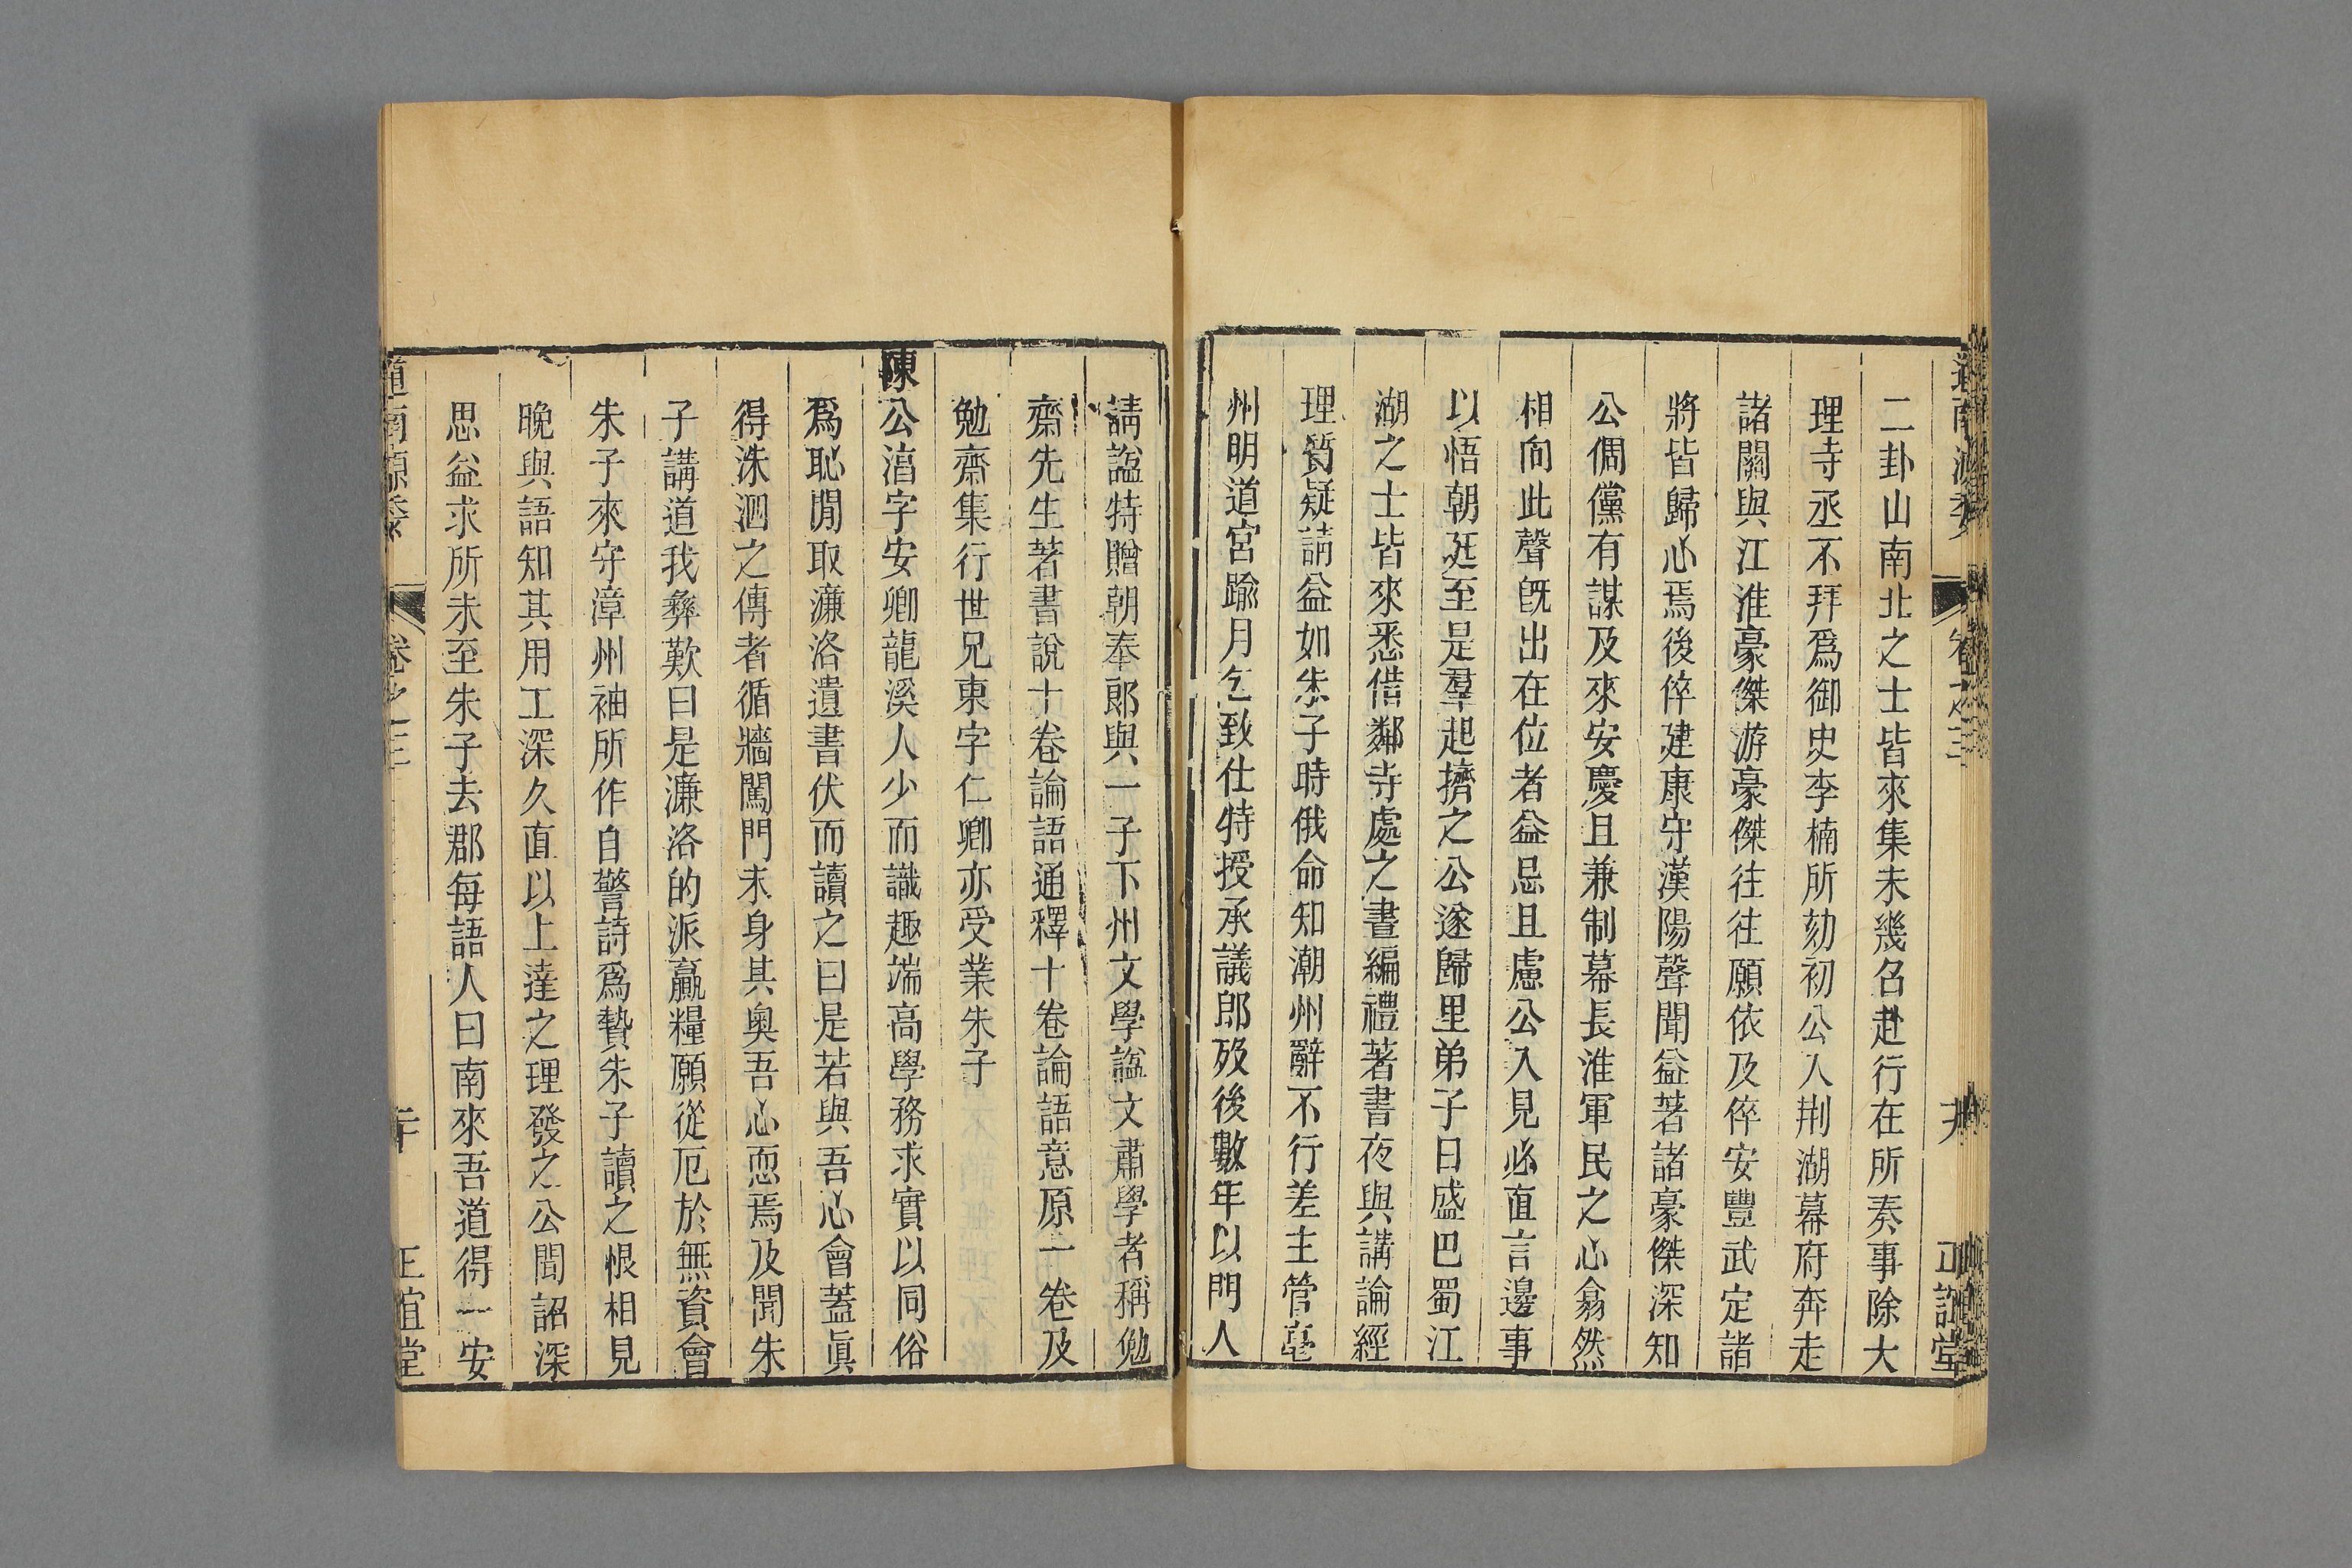 二卦山南北之士皆來集未幾名赴行在所奏事除大
理寺丞不拜爲御史李楠所劾初公入荆湖幕府奔走
諸關與江淮豪傑游豪傑徃徃願依及倅安豐武定諸
將皆歸心焉後倅建康守漢陽聲聞益著諸豪傑深知
公倜儻有謀及來安慶且兼制幕長淮軍民之心翕然
相向此聲旣出在位者益忌且慮公入見必直言邊事
以悟朝廷至是羣起擠之公遂歸里弟子日盛巴蜀江
湖之士皆來悉借鄰寺處之晝編禮著書夜與講論經
理質疑請益如朱子時俄命知潮州辭不行差主管亳
州明道宮踰月乞致仕特授承議郎歿後數年以門人
請諡特贈朝奉郎與一子下州文學諡文肅學者稱勉
齋先生著書說十卷論語通釋十卷論語意原一卷及
勉齋集行世兄東字仁卿亦受業朱子
陳公淳字安卿龍溪人少而識趣端高學務求實以同俗
爲恥閒取濂洛遺書伏而讀之曰是若與吾心會蓋眞
得洙泗之傳者循牆闖門未身其奧吾心恧焉及聞朱
子講道我彝歎曰是濂洛的派贏糧願從厄於無資會
朱子來守漳州袖所作自警詩爲贄朱子讀之恨相見
晚與語知其用工深久直以上達之理發之公聞詔深
思益求所未至朱子去郡每語人曰南來吾道得一安
道南源委
卷之三
正誼堂